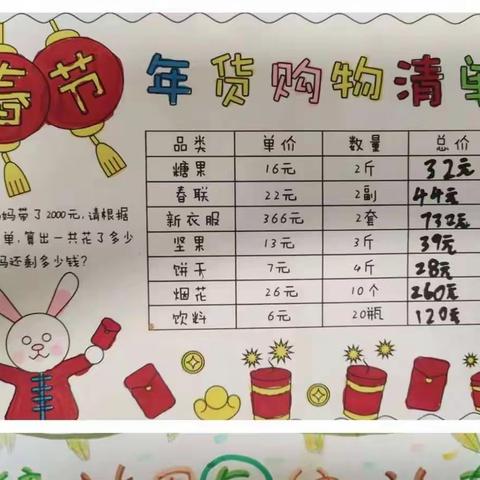 春节
年货购物清单
品类 单价 数量 总价
糖果 16元 2斤 32元
春联 22元 2副 44元
新衣服 366元 2套 732元
坚果 13元 3斤 39元
饼干 7元 4斤 28元
烟花 26元 10个 260元
饮料 6元 20瓶 120元
妈带了2000元,请根据
单,算出一共花了多少
妈还剩多少钱?